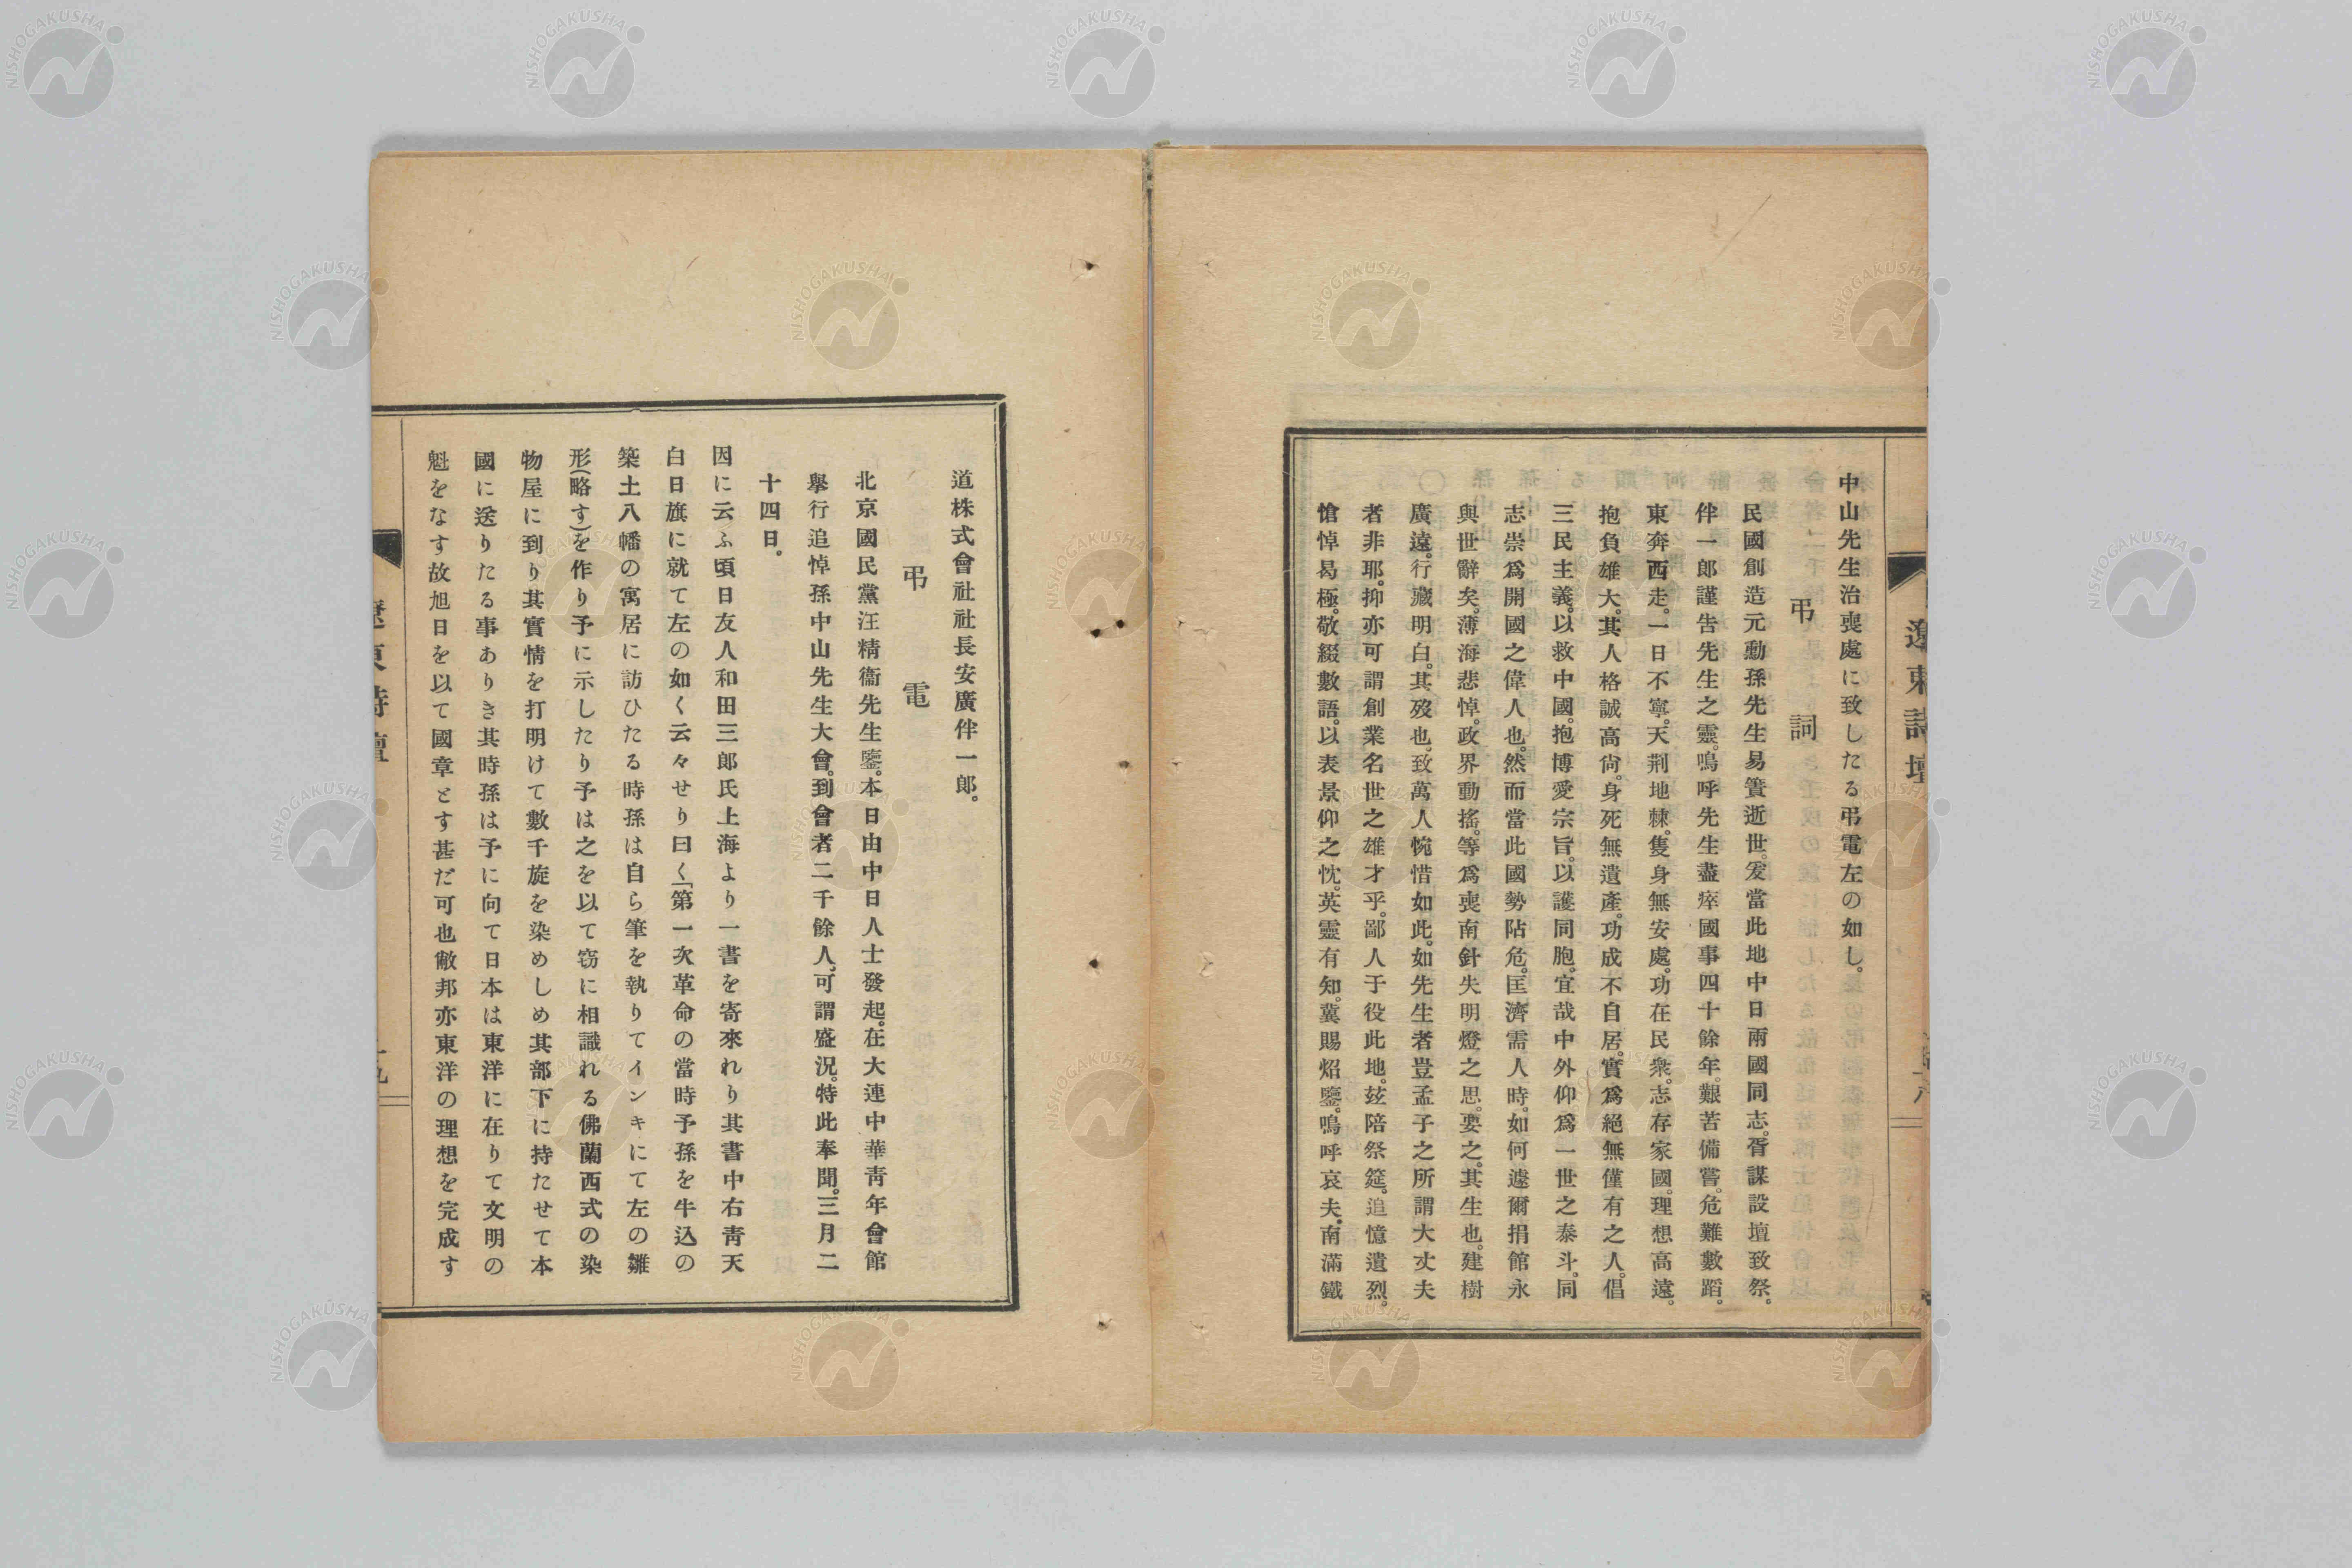 遼東詩壇
中山先生治喪處に致したる弔電左の如し。
弔詞
民國創造元勳孫先生易簀逝世。爰當此地中日兩國同志。胥謀設壇致祭。
伴一郎謹告先生之靈。嗚呼先生盡瘁國事四十餘年。艱苦備嘗。危難數蹈。
東奔西走。一日不寧。天荆地棘。隻身無安處。功在民衆。志存家國。理想高遠。
抱負雄大。其人格誠高尙。身死無遺產。功成不自居。實爲絕無僅有之人。倡
三民主義。以救中國。抱博愛宗旨。以護同胞。宜哉中外仰爲一世之泰斗。同
志崇爲開國之偉人也。然而當此國勢阽危。匡濟需人時。如何遽爾捐館永
與世辭矣。薄海悲悼。政界動搖。等爲喪南針失明燈之思。要之。其生也。建樹
廣遠。行藏明白。其歿也。致萬人惋惜如此。如先生者豈孟子之所謂大丈夫
者非耶。抑亦可謂創業名世之雄才乎。鄙人于役此地。玆陪祭筵。追憶遺烈。
愴悼曷極。敬綴數語。以表景仰之忱。英靈有知。冀賜炤鑒。嗚呼哀夫。南滿鐵
道株式會社社長安廣伴一郎。
弔電
北京國民黨汪精衞先生鑒。本日由中日人士發起。在大連中華靑年會館
擧行追悼孫中山先生大會。到會者二千餘人。可謂盛況。特此奉聞。三月二
十四日。
因に云ふ頃日友人和田三郎氏上海より一書を寄來れり其書中右靑天
白日旗に就て左の如く云々せり曰く「第一次革命の當時予孫を牛込の
築土八幡の寓居に訪ひたる時孫は自ら筆を執りてインキにて左の雛
形(略す)を作り予に示したり予は之を以て窃に相識れる佛蘭西式の染
物屋に到り其實情を打明けて數千旋を染めしめ其部下に持たせて本
國に送りたる事ありき其時孫は予に向て日本は東洋に在りて文明の
魁をなす故旭日を以て國章とす甚だ可也敝邦亦東洋の理想を完成す
遼東詩壇
NISHOGAKUSHA